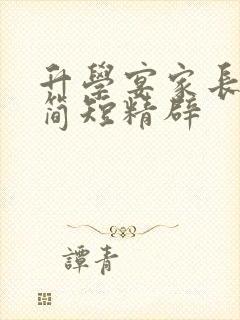 升學宴家長
简短精辟
譚青